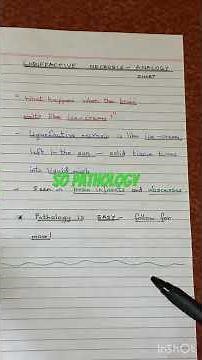 LIQUEFACTIVE NECROSIS - ANALOGY
SHORT
"What happens when the brain
melts like ice-cream?"
- Liquefactive necrosis is like ice-cream
left in the sun - solid tissue turns
into liquid mush
SO PATHOLOGY
- Seen in brain infarcts and abscesses
* Pathology is EASY - follow for
more!
InShot